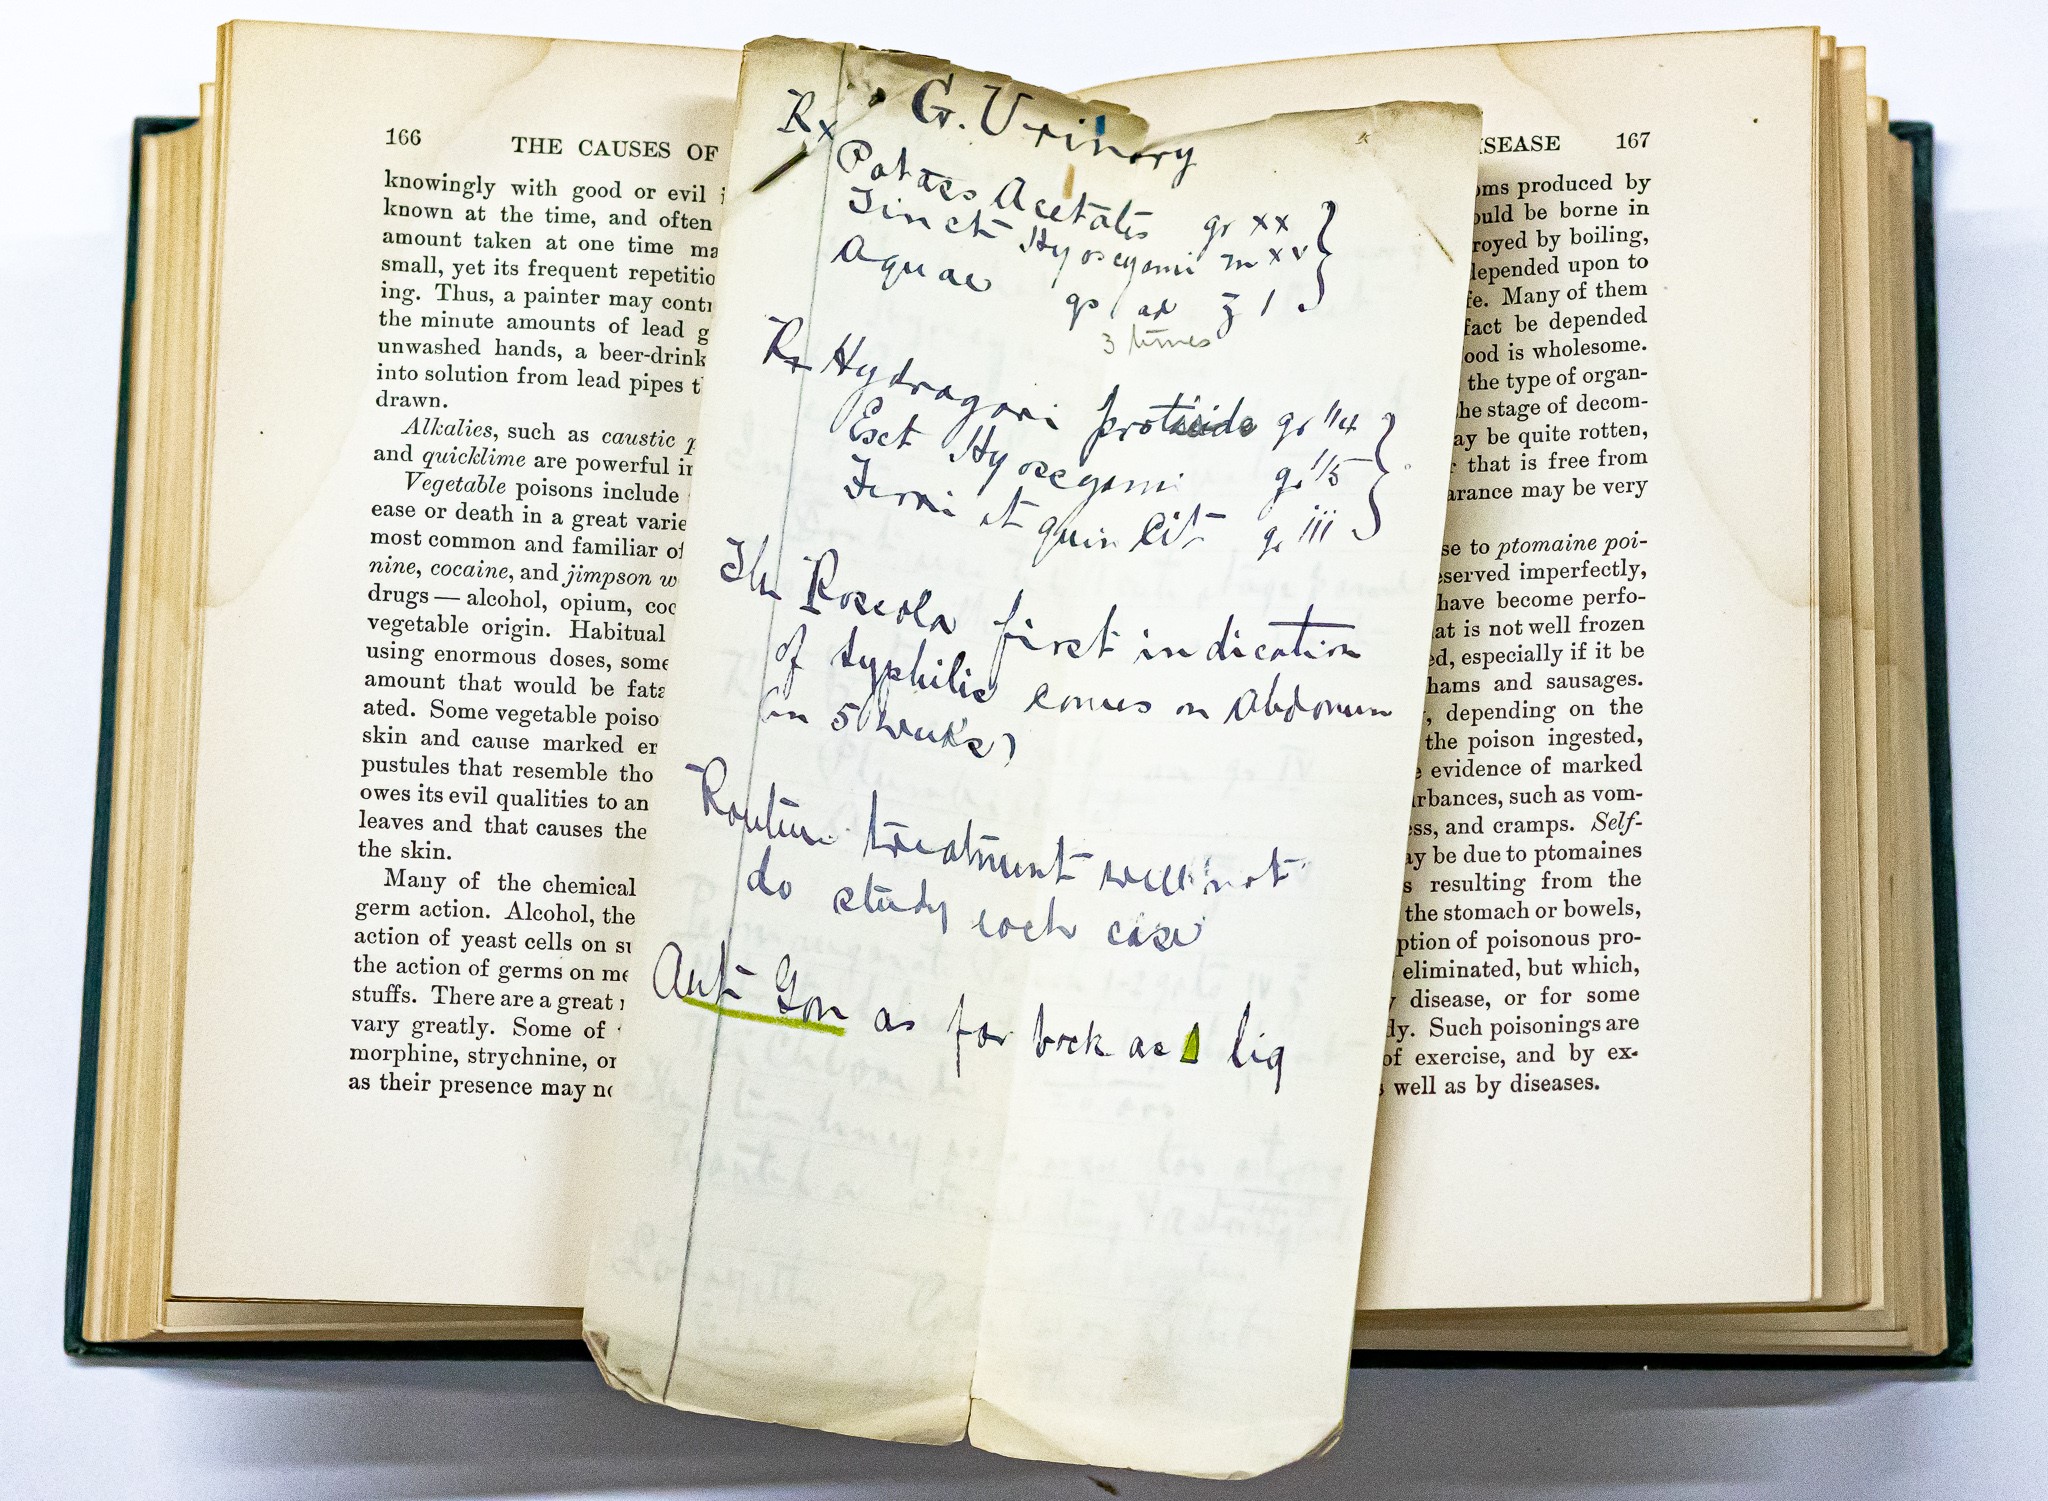 166 THE CAUSES OF
knowingly with good or evil
known at the time, and often
amount taken at one time ma
small, yet its frequent repetitio
ing. Thus, a painter may contr
the minute amounts of lead g
unwashed hands, a beer-drink
into solution from lead pipes t
drawn.
Alkalies, such as caustic p
and quicklime are powerful ir
Vegetable poisons include
ease or death in a great varie
most common and familiar of
nine, cocaine, and jimpson w
drugs — alcohol, opium, coc
vegetable origin. Habitual
using enormous doses, some
amount that would be fata
ated. Some vegetable poiso
skin and cause marked er
pustules that resemble tho
owes its evil qualities to an
leaves and that causes the
the skin.
Many of the chemical
germ action. Alcohol, the
action of yeast cells on su
the action of germs on me
stuffs. There are a great
vary greatly. Some of
morphine, strychnine, or
as their presence may no
G. Urinary
Rx
Potass Acetatis gr xx
Tinct Hyoscyami m xv
Aquae qs ad ʒ 1
3 times
Rx Hydragori protiside gr 1/4
Ext Hyoscyami gr 1/5
Ferri et quin Cit gr iii
The Roseola first indication
of syphilis comes on Abdomen
(in 5 weeks)
Routine treatment will not
do study each case
Anti Gon as far back as lig
ISEASE 167
oms produced by
ould be borne in
royed by boiling,
depended upon to
fe. Many of them
fact be depended
ood is wholesome.
the type of organ-
he stage of decom-
ay be quite rotten,
that is free from
arance may be very
se to ptomaine poi-
eserved imperfectly,
have become perfo-
at is not well frozen
ed, especially if it be
hams and sausages.
, depending on the
the poison ingested,
e evidence of marked
rbances, such as vom-
ess, and cramps. Self-
ay be due to ptomaines
s resulting from the
the stomach or bowels,
ption of poisonous pro-
eliminated, but which,
y disease, or for some
dy. Such poisonings are
of exercise, and by ex-
s well as by diseases.